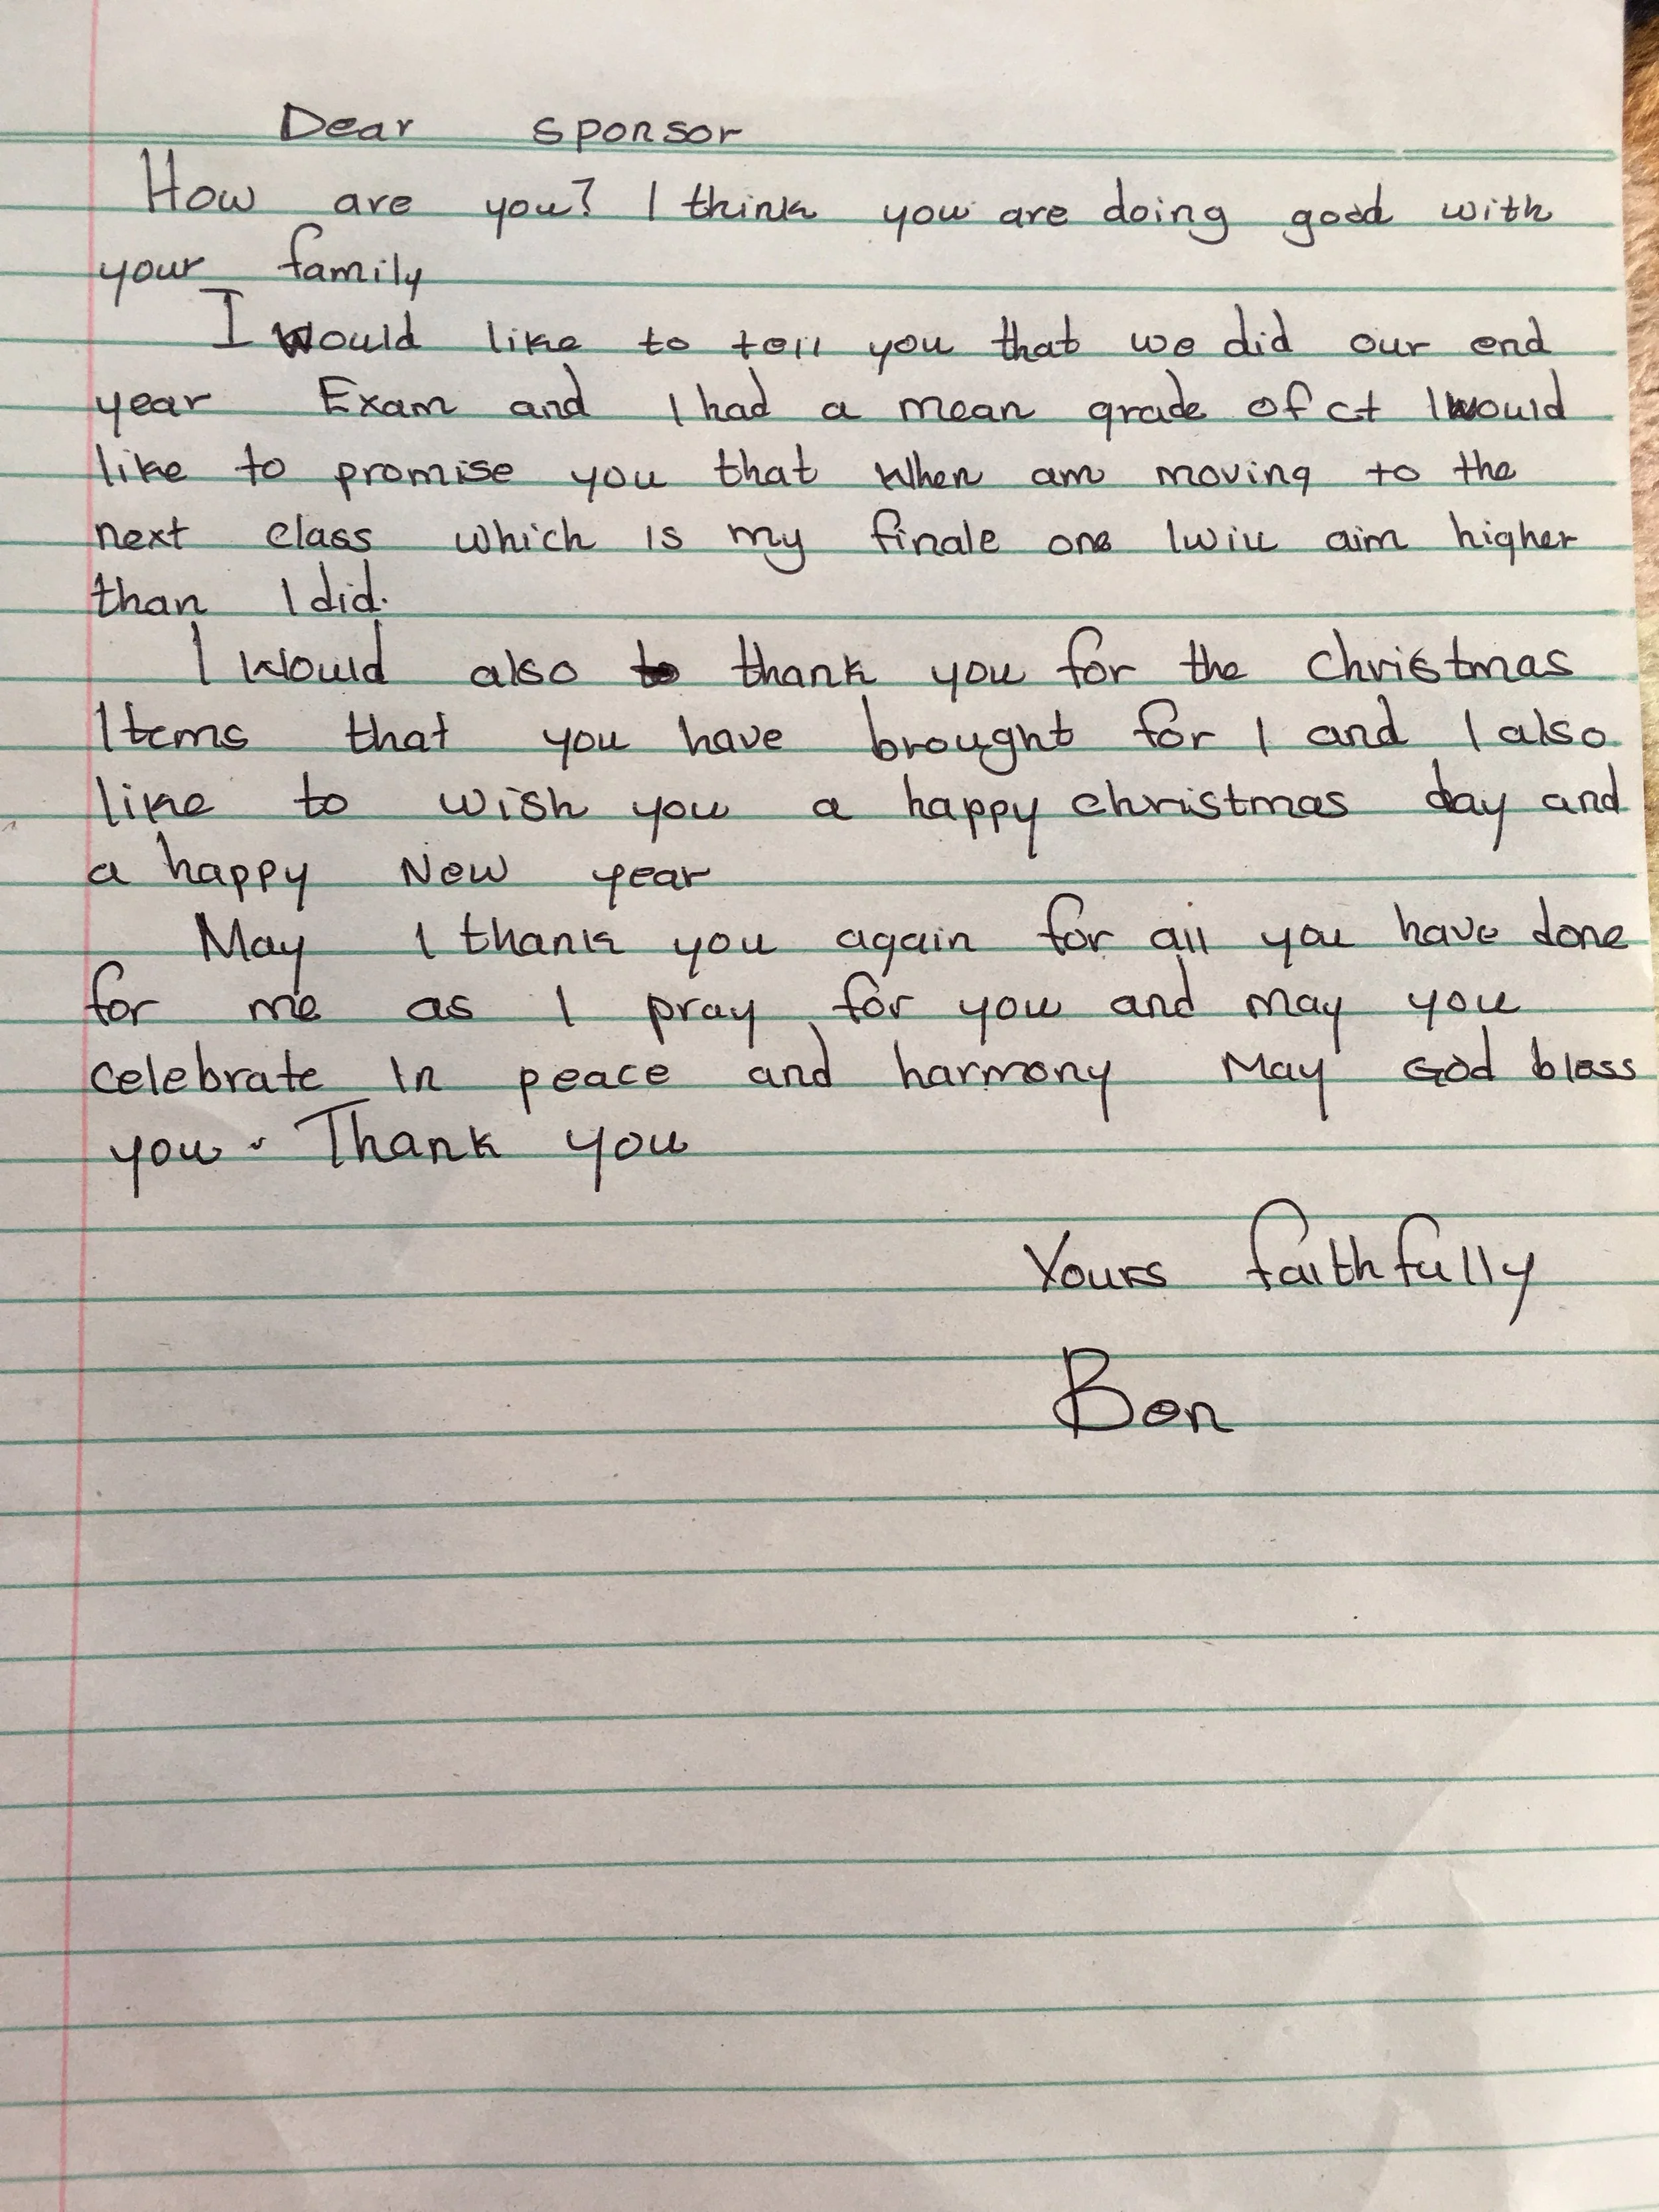 Dear sponsor
How are you? I think you are doing good with
your family
I would like to tell you that we did our end
year Exam and I had a mean grade of c+ I would
like to promise you that When am moving to the
next class which is my finale one I will aim higher
than I did.
I Would also to thank you for the Christmas
Items that you have brought for I and I also
like to wish you a happy christmas day and
a happy New year
May I thank you again for all you have done
for me as I pray for you and may you
celebrate In peace and harmony May God bless
you. Thank you
Yours faithfully
Ben